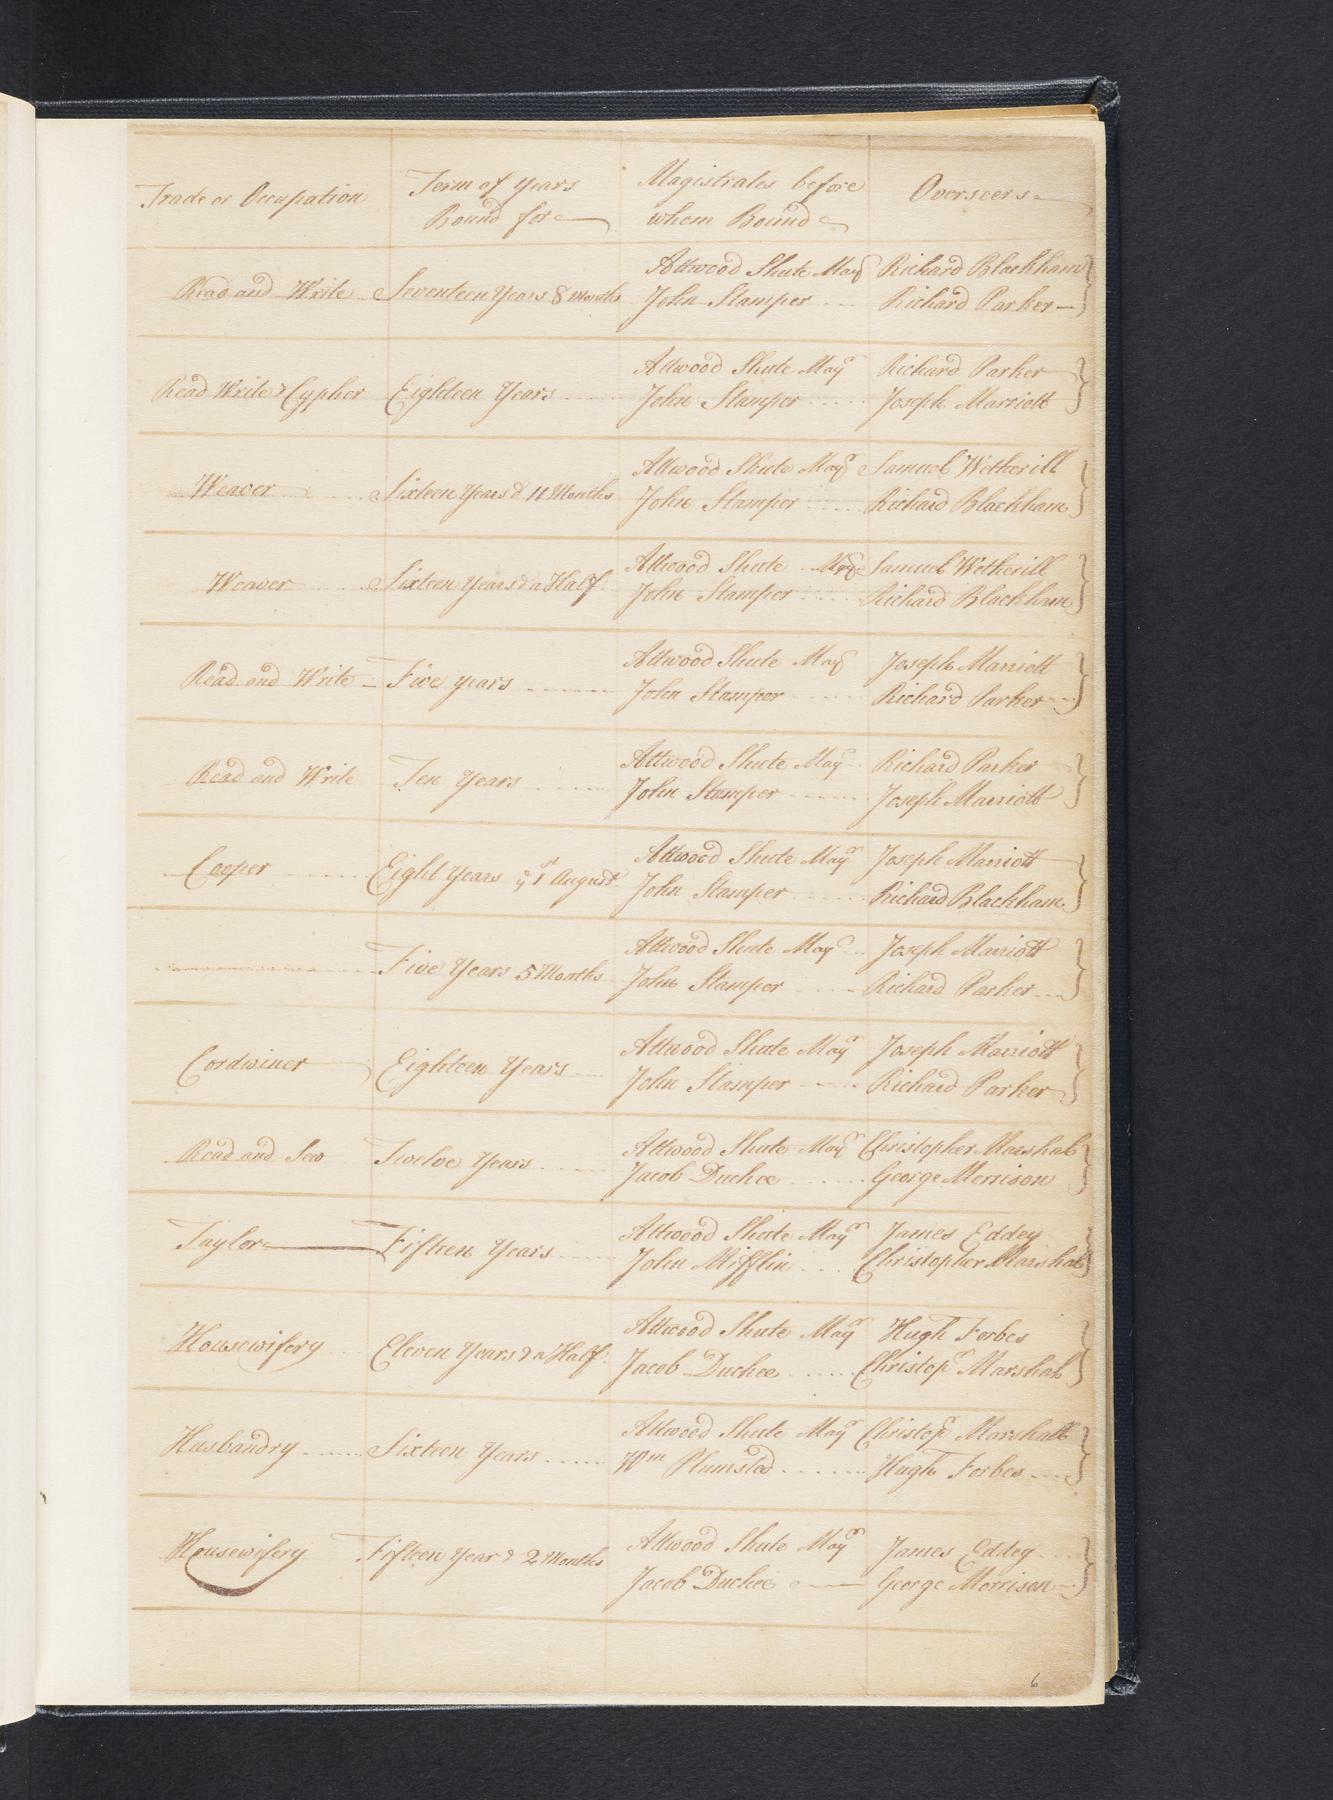 Trade or Occupation
Term of Years
Bound for
Magistrates before
whom Bound
Overseers
Read and Write
Seventeen Years 8 Months
Attwood Shute Mayr
John Stamper
Richard Blackham
Richard Parker
Read Write & Cypher
Eighteen Years
Attwood Shute Mayr
John Stamper
Richard Parker
Joseph Marriott
Weaver
Sixteen Years & 11 Months
Attwood Shute Mayr
John Stamper
Samuel Wetherill
Richard Blackham
Weaver
Sixteen Years & a Half
Attwood Shute Mayr
John Stamper
Samuel Wetherill
Richard Blackham
Read and Write
Five years
Attwood Shute Mayr
John Stamper
Joseph Marriott
Richard Parker
Read and Write
Ten Years
Attwood Shute Mayr
John Stamper
Richard Parker
Joseph Marriott
Cooper
Eight Years ye 1st August
Attwood Shute Mayr
John Stamper
Joseph Marriott
Richard Blackham
Five Years 5 Months
Attwood Shute Mayr
John Stamper
Joseph Marriott
Richard Parker
Cordwiner
Eighteen Years
Attwood Shute Mayr
John Stamper
Joseph Marriott
Richard Parker
Read and Sew
Twelve Years
Attwood Shute Mayr
Jacob Duchee
Christopher Marshal
George Morrison
Taylor
Fifteen Years
Attwood Shute Mayr
John Mifflin
James Eddey
Christopher Marshal
Housewifery
Eleven Years & a Half
Attwood Shute Mayr
Jacob Duchee
Hugh Forbes
Christopr Marshal
Husbandry
Sixteen Years
Attwood Shute Mayr
Wm Plumsted
Christopr Marshall
Hugh Forbes
Housewifery
Fifteen Year & 2 Months
Attwood Shute Mayr
Jacob Duchee
James Eddey
George Morrison
6